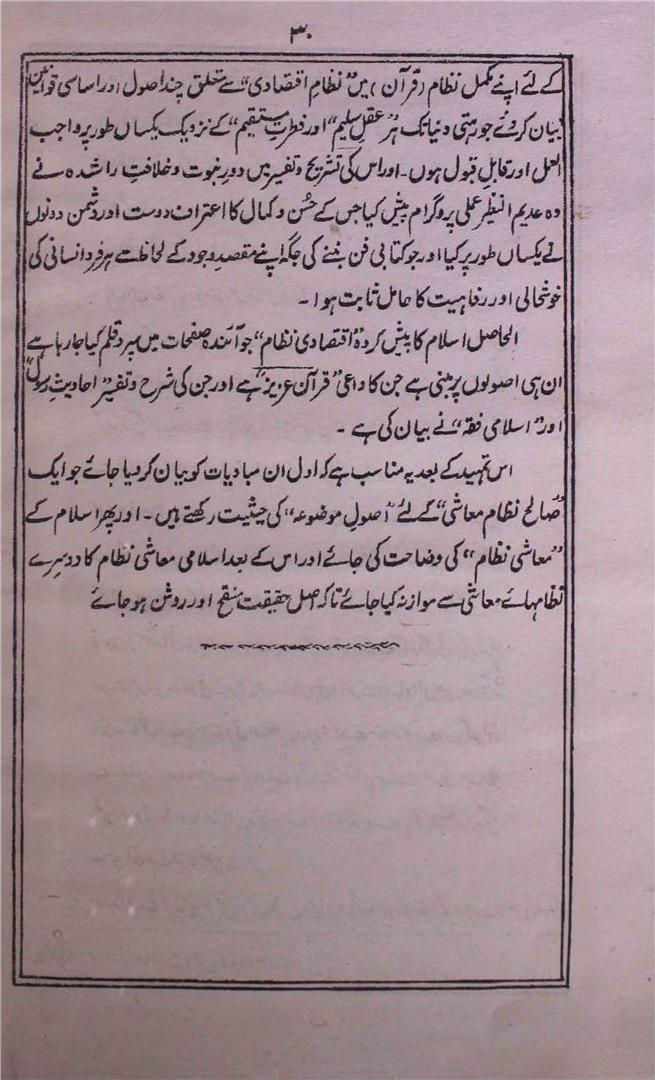 ۳۰
کے لئے اپنے مکمل نظام (قرآن) میں "نظامِ اقتصادی" سے متعلق چند اصول اور اساسی قوانین
بیان کر دئے جو رہتی دنیا تک ہر "عقلِ سلیم" اور "فطرتِ مستقیم" کے نزدیک یکساں طور پر واجب
العمل اور قابلِ قبول ہوں۔ اور اس کی تشریح و تفسیر میں دورِ نبوت و خلافتِ راشدہ نے
وہ عدیم النظیر عملی پروگرام پیش کیا جس کے حُسن و کمال کا اعتراف دوست اور دشمن دونوں
نے یکساں طور پر کیا اور جو کتابی فن بننے کی جگہ اپنے مقصدِ وجود کے لحاظ سے ہر فردِ انسانی کی
خوشحالی اور رفاہیت کا حامل ثابت ہوا۔
الحاصل اسلام کا پیش کردہ "اقتصادی نظام" جو آئندہ صفحات میں سپردِ قلم کیا جا رہا ہے
ان ہی اصولوں پر مبنی ہے جن کا داعی "قرآن عزیز" ہے اور جن کی شرح و تفسیر "احادیثِ رسول"
اور "اسلامی فقہ" نے بیان کی ہے۔
اس تمہید کے بعد یہ مناسب ہے کہ اول ان مبادیات کو بیان کر دیا جائے جو ایک
"صالح نظام معاشی" کے لئے "اصولِ موضوعہ" کی حیثیت رکھتے ہیں۔ اور پھر اسلام کے
"معاشی نظام" کی وضاحت کی جائے اور اس کے بعد اسلامی معاشی نظام کا دوسرے
نظامہائے معاشی سے موازنہ کیا جائے تاکہ اصل حقیقت منقح اور روشن ہو جائے